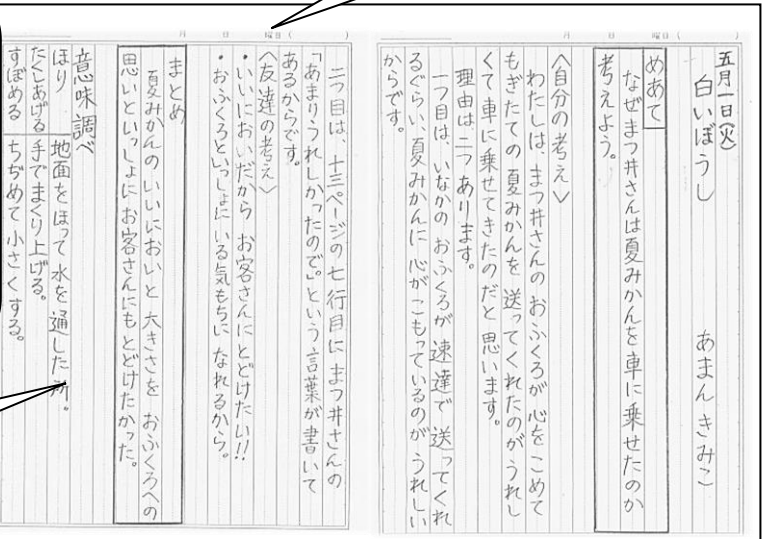 月 日 曜日( )
五月一日(火)
白いぼうし あまんきみこ
めあて
なぜまつ井さんは夏みかんを車に乗せたのか
考えよう。
〈自分の考え〉
わたしは、まつ井さんのおふくろが心をこめて
もぎたての夏みかんを送ってくれたのがうれし
くて車に乗せてきたのだと思います。
理由は二つあります。
一つ目は、いなかのおふくろが速達で送ってくれ
るぐらい、夏みかんに心がこもっているのがうれしい
からです。
月 日 曜日( )
二つ目は、十三ページの七行目にまつ井さんの
「あまりうれしかったので。」という言葉が書いて
あるからです。
〈友達の考え〉
・いいにおいだからお客さんにとどけたい!!
・おふくろといっしょにいる気もちになれるから。
まとめ
夏みかんのいいにおいと大きさをおふくろへの
思いといっしょにお客さんにもとどけたかった。
意味調べ
ほり 地面をほって水を通した所。
たくしあげる 手でまくり上げる。
すぼめる ちぢめて小さくする。